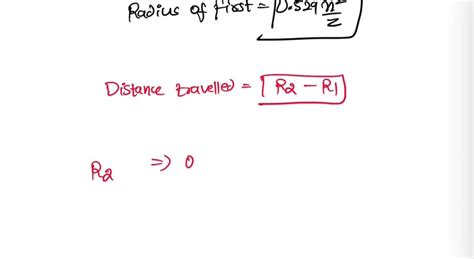 Radius of first = 0.529 n²/Z
Distance travelled = R2 - R1
R2 => 0